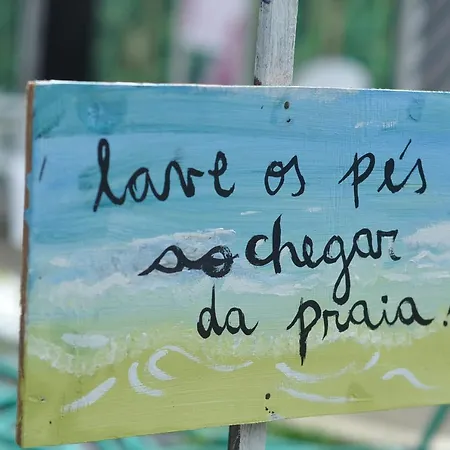 lave os pés
ao chegar
da praia!